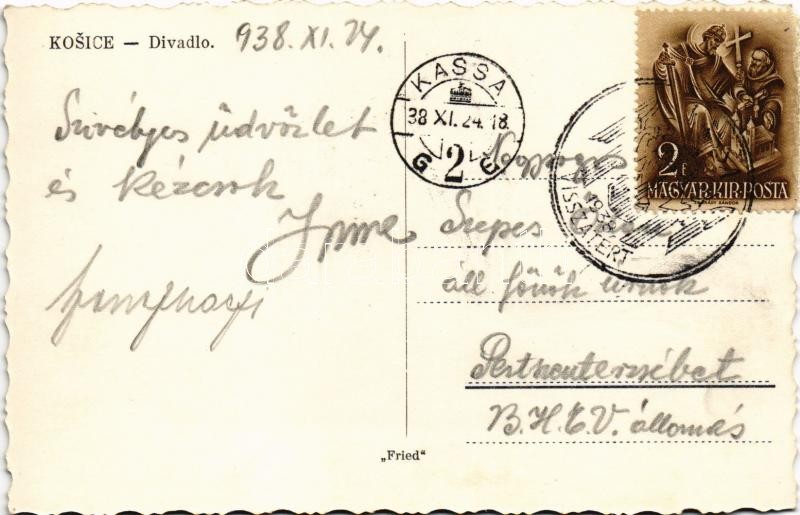 KOŠICE — Divadlo.
938. XI. 24.
Szivélyes üdvözlet
és kézcsók
Imre
KASSA
38 XI. 24. 18
2
1938
VISSZATÉRT
2 f
MAGYAR·KIR·POSTA
Szepes
áll. főnök úrnak
Pestszenterzsébet
B.H.É.V. állomás
„Fried"